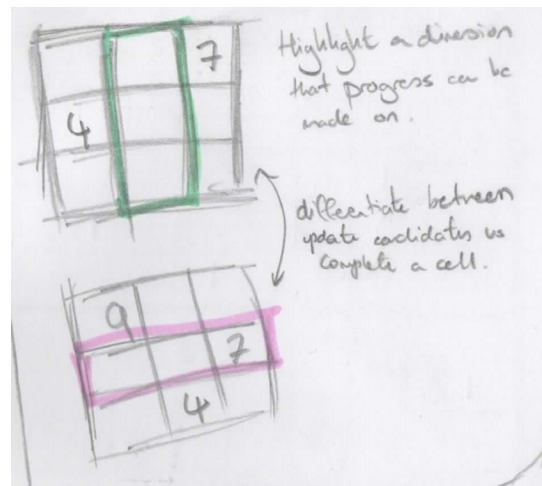 7
Highlight a dimension
that progress can be
made on.
4
differentiate between
update candidates vs
complete a cell.
9
7
4